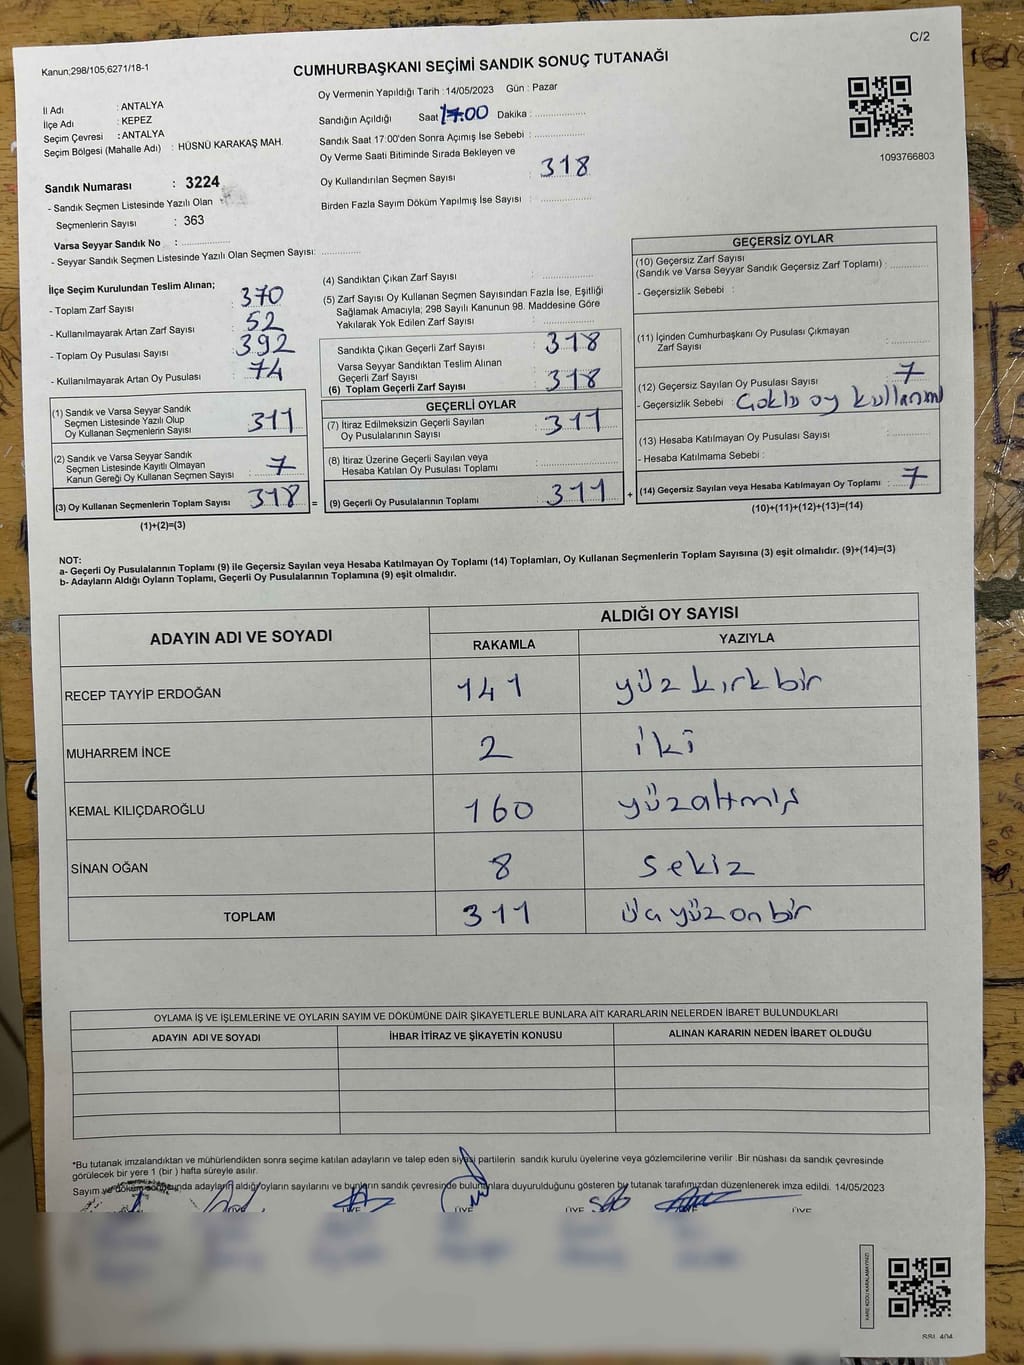 C/2
Kanun;298/105;6271/18-1
CUMHURBAŞKANI SEÇİMİ SANDIK SONUÇ TUTANAĞI
İl Adı : ANTALYA
İlçe Adı : KEPEZ
Seçim Çevresi : ANTALYA
Seçim Bölgesi (Mahalle Adı) : HÜSNÜ KARAKAŞ MAH.
Sandık Numarası : 3224
- Sandık Seçmen Listesinde Yazılı Olan
Seçmenlerin Sayısı : 363
Varsa Seyyar Sandık No :
- Seyyar Sandık Seçmen Listesinde Yazılı Olan Seçmen Sayısı:
Oy Vermenin Yapıldığı Tarih :14/05/2023 Gün : Pazar
Sandığın Açıldığı Saat 17:00 Dakika :
Sandık Saat 17:00'den Sonra Açımış İse Sebebi :
Oy Verme Saati Bitiminde Sırada Bekleyen ve
Oy Kullandırılan Seçmen Sayısı : 318
Birden Fazla Sayım Döküm Yapılmış İse Sayısı :
1093766803
İlçe Seçim Kurulundan Teslim Alınan;
- Toplam Zarf Sayısı : 370
- Kullanılmayarak Artan Zarf Sayısı : 52
- Toplam Oy Pusulası Sayısı : 392
- Kullanılmayarak Artan Oy Pusulası : 74
(1) Sandık ve Varsa Seyyar Sandık
Seçmen Listesinde Yazılı Olup
Oy Kullanan Seçmenlerin Sayısı : 311
(2) Sandık ve Varsa Seyyar Sandık
Seçmen Listesinde Kayıtlı Olmayan
Kanun Gereği Oy Kullanan Seçmen Sayısı : 7
(3) Oy Kullanan Seçmenlerin Toplam Sayısı : 318 =
(1)+(2)=(3)
(4) Sandıktan Çıkan Zarf Sayısı :
(5) Zarf Sayısı Oy Kullanan Seçmen Sayısından Fazla İse, Eşitliği
Sağlamak Amacıyla; 298 Sayılı Kanunun 98. Maddesine Göre
Yakılarak Yok Edilen Zarf Sayısı :
Sandıkta Çıkan Geçerli Zarf Sayısı : 318
Varsa Seyyar Sandıktan Teslim Alınan
Geçerli Zarf Sayısı
(6) Toplam Geçerli Zarf Sayısı : 318
GEÇERLİ OYLAR
(7) İtiraz Edilmeksizin Geçerli Sayılan
Oy Pusulalarının Sayısı : 311
(8) İtiraz Üzerine Geçerli Sayılan veya
Hesaba Katılan Oy Pusulası Toplamı :
(9) Geçerli Oy Pusulalarının Toplamı : 311 +
GEÇERSİZ OYLAR
(10) Geçersiz Zarf Sayısı
(Sandık ve Varsa Seyyar Sandık Geçersiz Zarf Toplamı) :
- Geçersizlik Sebebi :
(11) İçinden Cumhurbaşkanı Oy Pusulası Çıkmayan
Zarf Sayısı :
(12) Geçersiz Sayılan Oy Pusulası Sayısı : 7
- Geçersizlik Sebebi : Çoklu oy kullanımı
(13) Hesaba Katılmayan Oy Pusulası Sayısı :
- Hesaba Katılmama Sebebi :
(14) Geçersiz Sayılan veya Hesaba Katılmayan Oy Toplamı : 7
(10)+(11)+(12)+(13)=(14)
NOT:
a- Geçerli Oy Pusulalarının Toplamı (9) ile Geçersiz Sayılan veya Hesaba Katılmayan Oy Toplamı (14) Toplamları, Oy Kullanan Seçmenlerin Toplam Sayısına (3) eşit olmalıdır. (9)+(14)=(3)
b- Adayların Aldığı Oyların Toplamı, Geçerli Oy Pusulalarının Toplamına (9) eşit olmalıdır.
ADAYIN ADI VE SOYADI
ALDIĞI OY SAYISI
RAKAMLA YAZIYLA
RECEP TAYYİP ERDOĞAN 141 yüz kırk bir
MUHARREM İNCE 2 iki
KEMAL KILIÇDAROĞLU 160 yüzaltmış
SİNAN OĞAN 8 sekiz
TOPLAM 311 üç yüz on bir
OYLAMA İŞ VE İŞLEMLERİNE VE OYLARIN SAYIM VE DÖKÜMÜNE DAİR ŞİKAYETLERLE BUNLARA AİT KARARLARIN NELERDEN İBARET BULUNDUKLARI
ADAYIN ADI VE SOYADI İHBAR İTİRAZ VE ŞİKAYETİN KONUSU ALINAN KARARIN NEDEN İBARET OLDUĞU
*Bu tutanak imzalandıktan ve mühürlendikten sonra seçime katılan adayların ve talep eden siyasi partilerin sandık kurulu üyelerine veya gözlemcilerine verilir .Bir nüshası da sandık çevresinde
görülecek bir yere 1 (bir ) hafta süreyle asılır.
Sayım ve döküm sonucunda adayların aldığı oyların sayılarını ve bunların sandık çevresinde bulunanlara duyurulduğunu gösteren bu tutanak tarafımızdan düzenlenerek imza edildi. 14/05/2023
ÜYE ÜYE ÜYE ÜYE ÜYE
KARE KODU KARALAMAYINIZ!
SSL 404